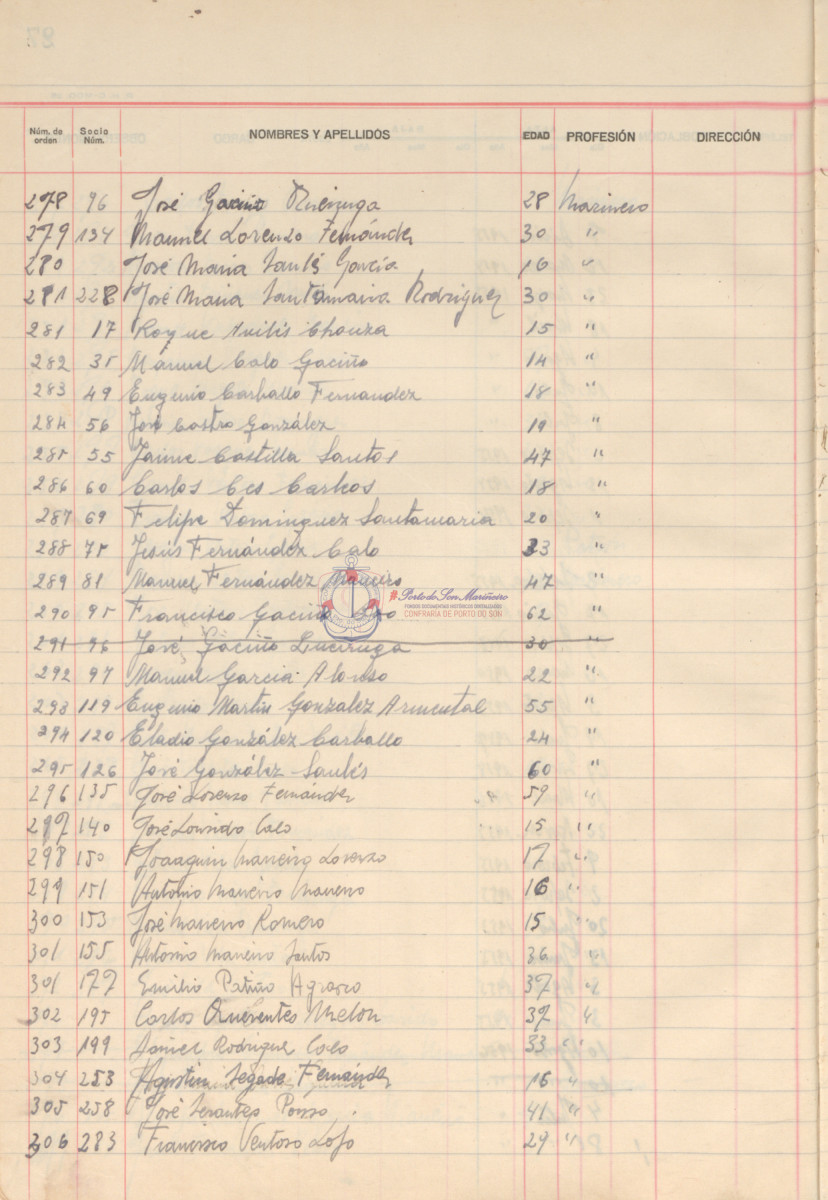 Núm. de orden Socio Núm. NOMBRES Y APELLIDOS EDAD PROFESIÓN DIRECCIÓN
278 96 José Gaciño 28 Marinero
279 134 Manuel Lorenzo Fernández 30 "
280 José Maria Santís García 16 "
281 228 José Maria Santamaria Rodriguez 30 "
281 17 Roque Chouza 15 "
282 35 Manuel Calo Gaciño 14 "
283 49 Eugenio Carballo Fernandez 18 "
284 56 José Castro González 19 "
285 55 Jaime Castilla Santos 47 "
286 60 Carlos Ces 18 "
287 69 Felipe Dominguez Santamaria 20 "
288 75 Jesús Fernández Calo 33 "
289 81 Manuel Fernández Maneiro 47 "
#Porto do Son Mariñeiro
FONDOS DOCUMENTAIS HISTÓRICOS DIXITALIZADOS
CONFRARÍA DE PORTO DO SON
290 95 Francisco Gaciño 62 "
291 96 José Gaciño 30 "
292 97 Manuel Garcia Alonso 22 "
293 119 Eugenio Martin Gonzalez Armental 55 "
294 120 Eladio González Carballo 24 "
295 126 José González Santís 60 "
296 135 José Lorenzo Fernández 59 "
297 140 José Lourido Calo 15 "
298 150 Joaaquin Maneiro Lorenzo 17 "
299 151 Antonio Maneiro Maneiro 16 "
300 153 José Maneiro Romero 15 "
301 155 Antonio Maneiro Santos 36 "
301 177 Emilio Patiño 37 "
302 195 Carlos Querentes Melon 37 "
303 199 Daniel Rodriguez Calo 33 "
304 253 Agustin Segade Fernández 16 "
305 258 José Serantes 41 "
306 283 Francisco Ventoso 29 "